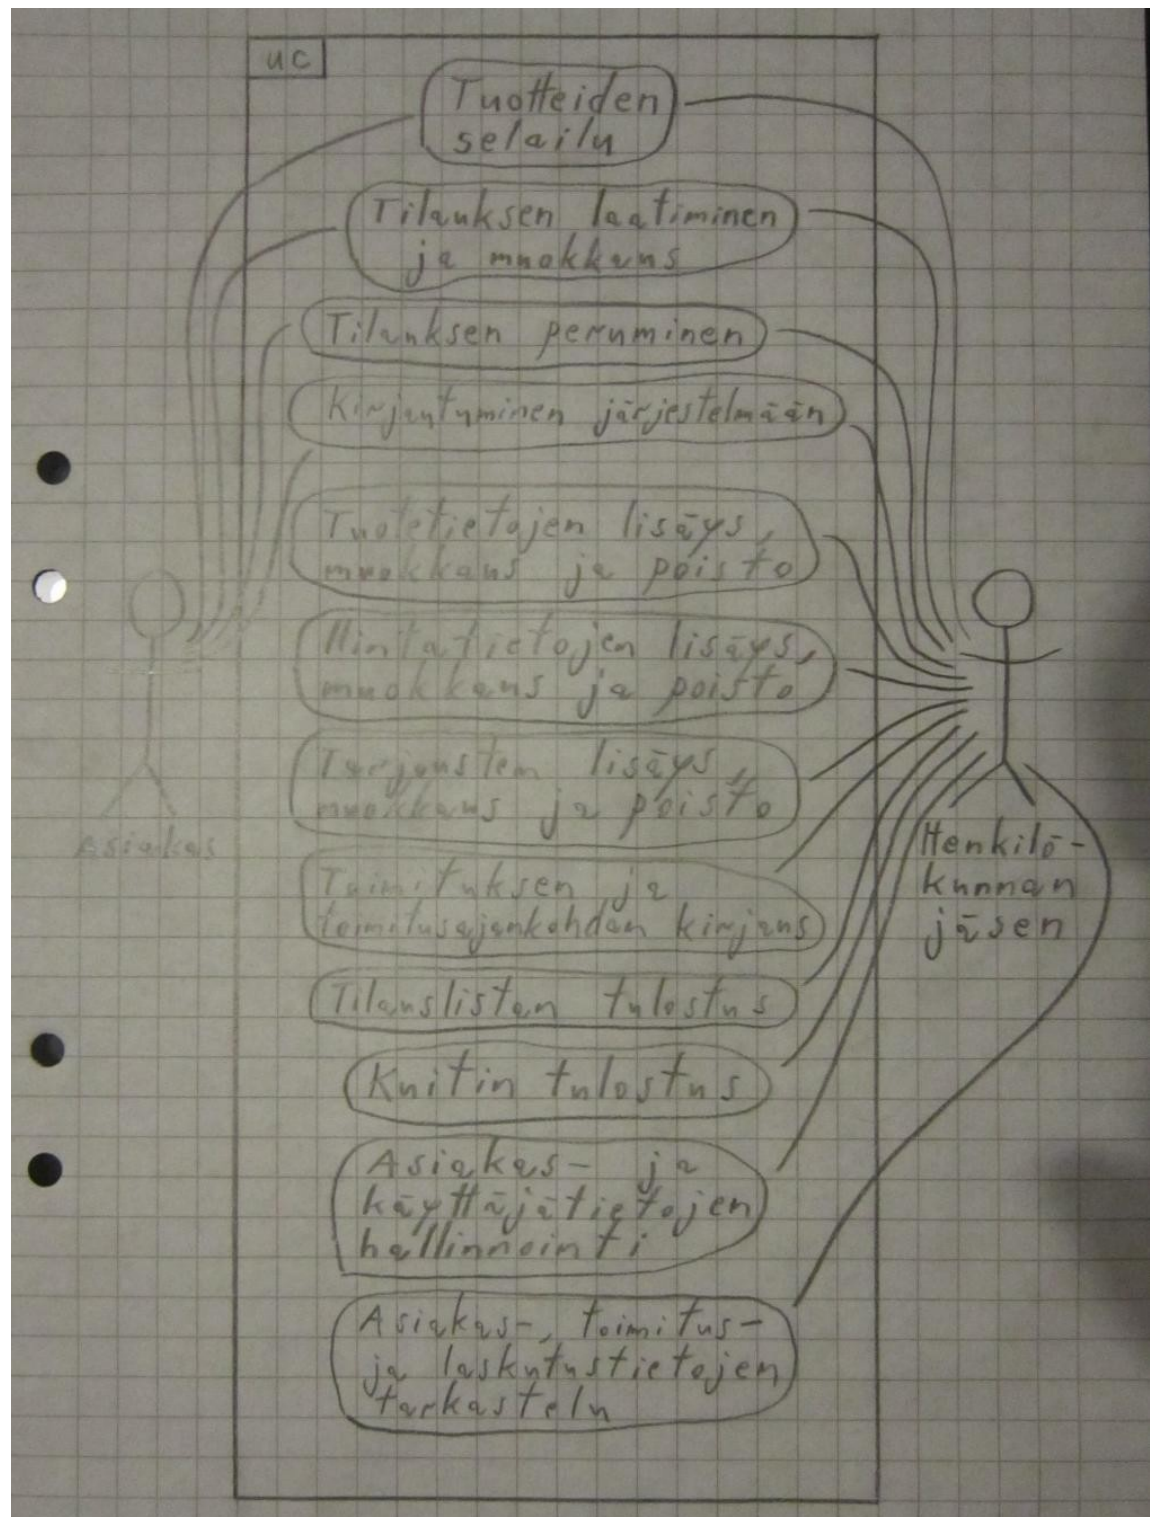 uc
Tuotteiden
selailu
Tilauksen laatiminen
ja muokkaus
Tilauksen peruminen
Kirjautuminen järjestelmään
Tuotetietojen lisäys,
muokkaus ja poisto
Hintatietojen lisäys,
muokkaus ja poisto
Tarjousten lisäys,
muokkaus ja poisto
Toimituksen ja
toimitusajankohdan kirjaus
Tilauslistan tulostus
Kuitin tulostus
Asiakas- ja
käyttäjätietojen
hallinnointi
Asiakas-, toimitus-
ja laskutustietojen
tarkastelu
Asiakas
Henkilö-
kunnan
jäsen